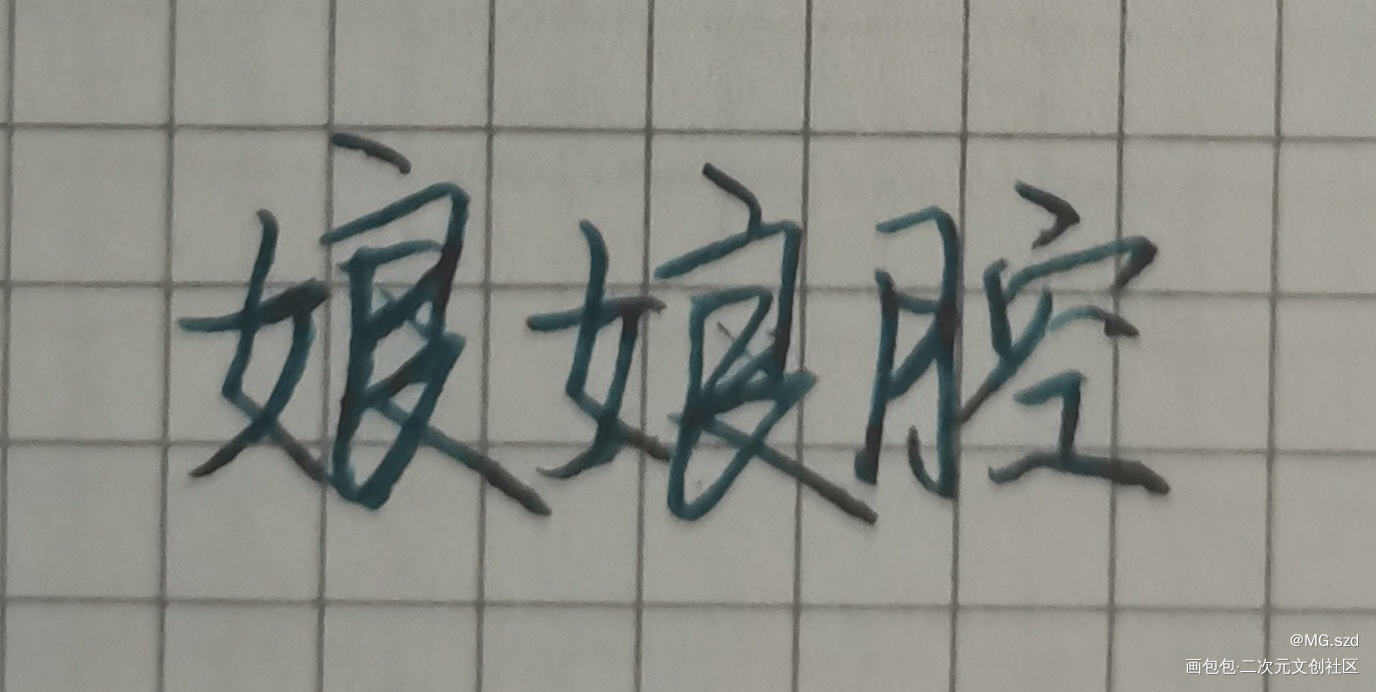 娘娘腔
@MG.szd
画包包·二次元文创社区